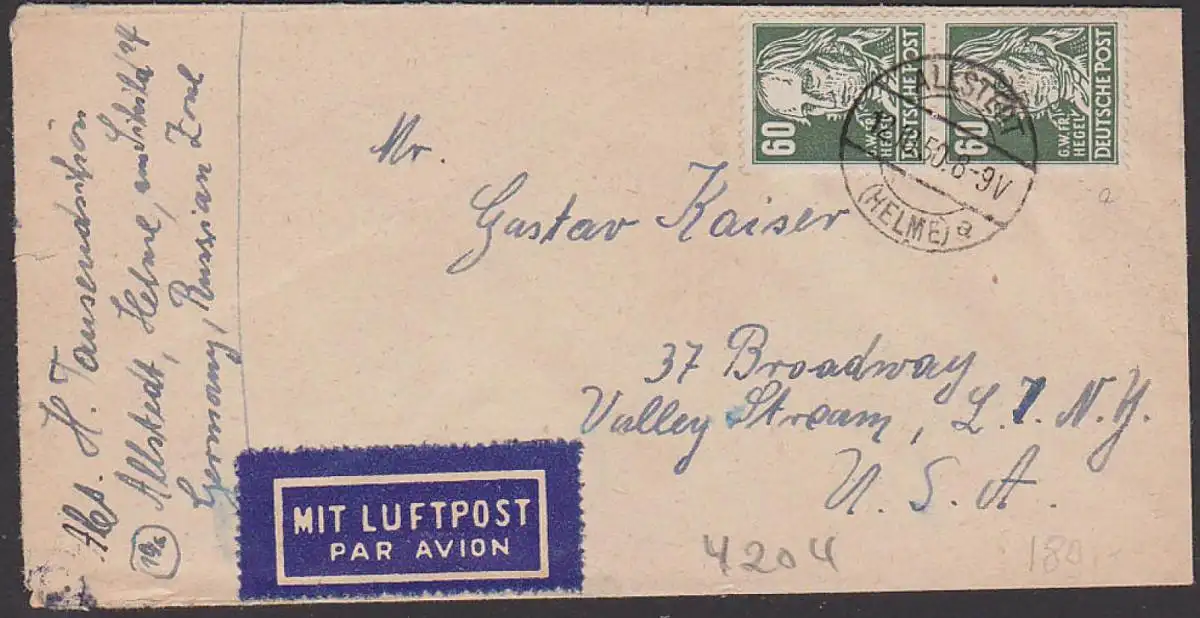 60
G.W.FR.
HEGEL
DEUTSCHE POST
60
G.W.FR.
HEGEL
DEUTSCHE POST
ALLSTEDT
50.8-9V
(HELME) a
Mr.
Gustav Kaiser
37 Broadway
Valley Stream, L.I. N.Y.
U. S. A.
Abs. H.
Allstedt, Helme,
Germany, Russian Zone
MIT LUFTPOST
PAR AVION
4204
180.-
a